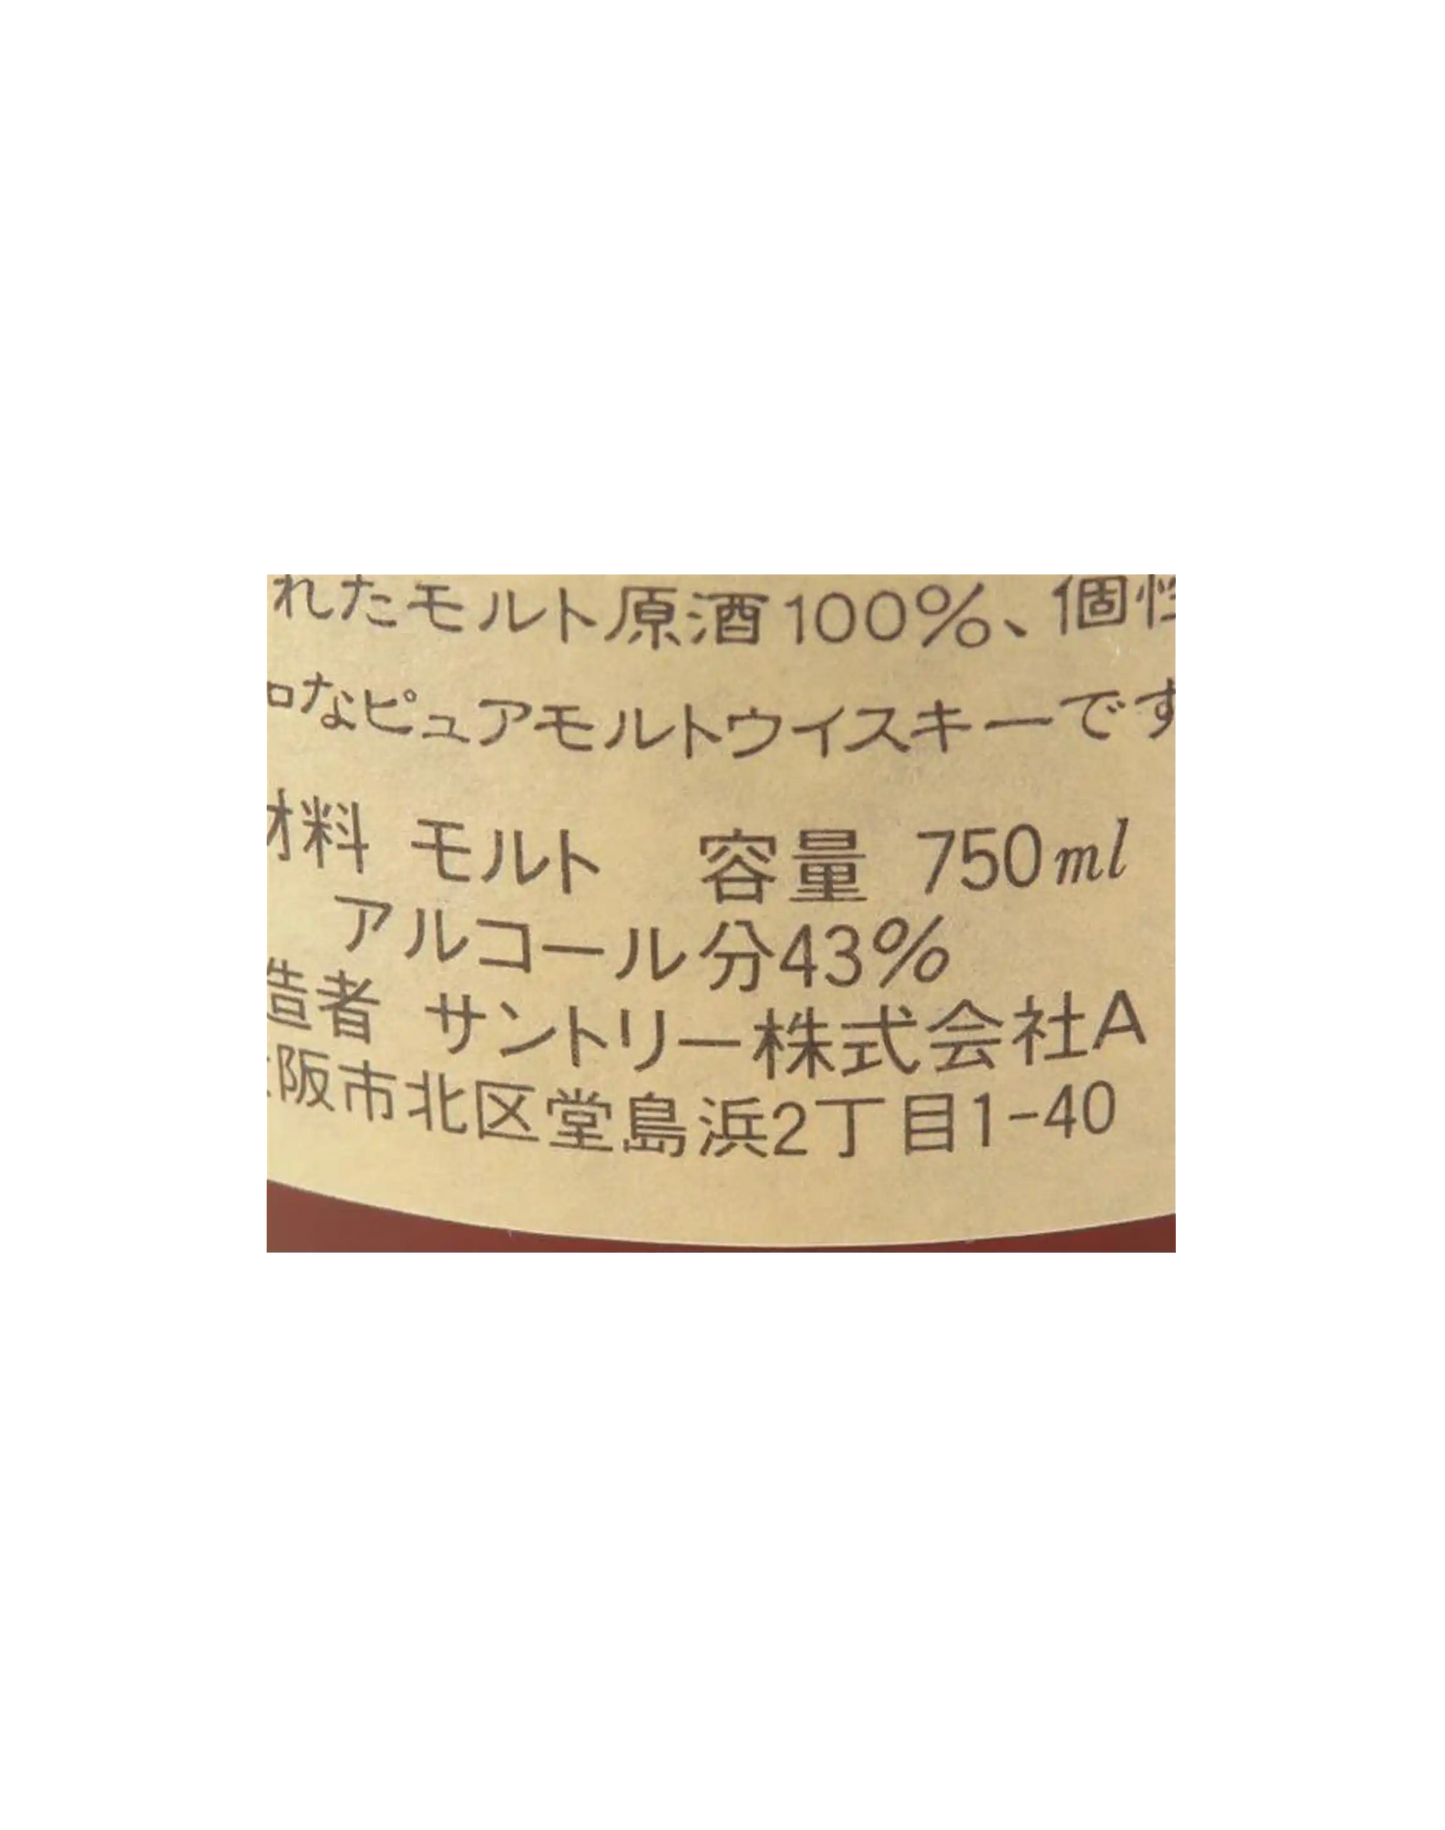 れたモルト原酒100%、個性
なピュアモルトウイスキーです
材料 モルト 容量 750ml
アルコール分43%
造者 サントリー株式会社A
阪市北区堂島浜2丁目1-40